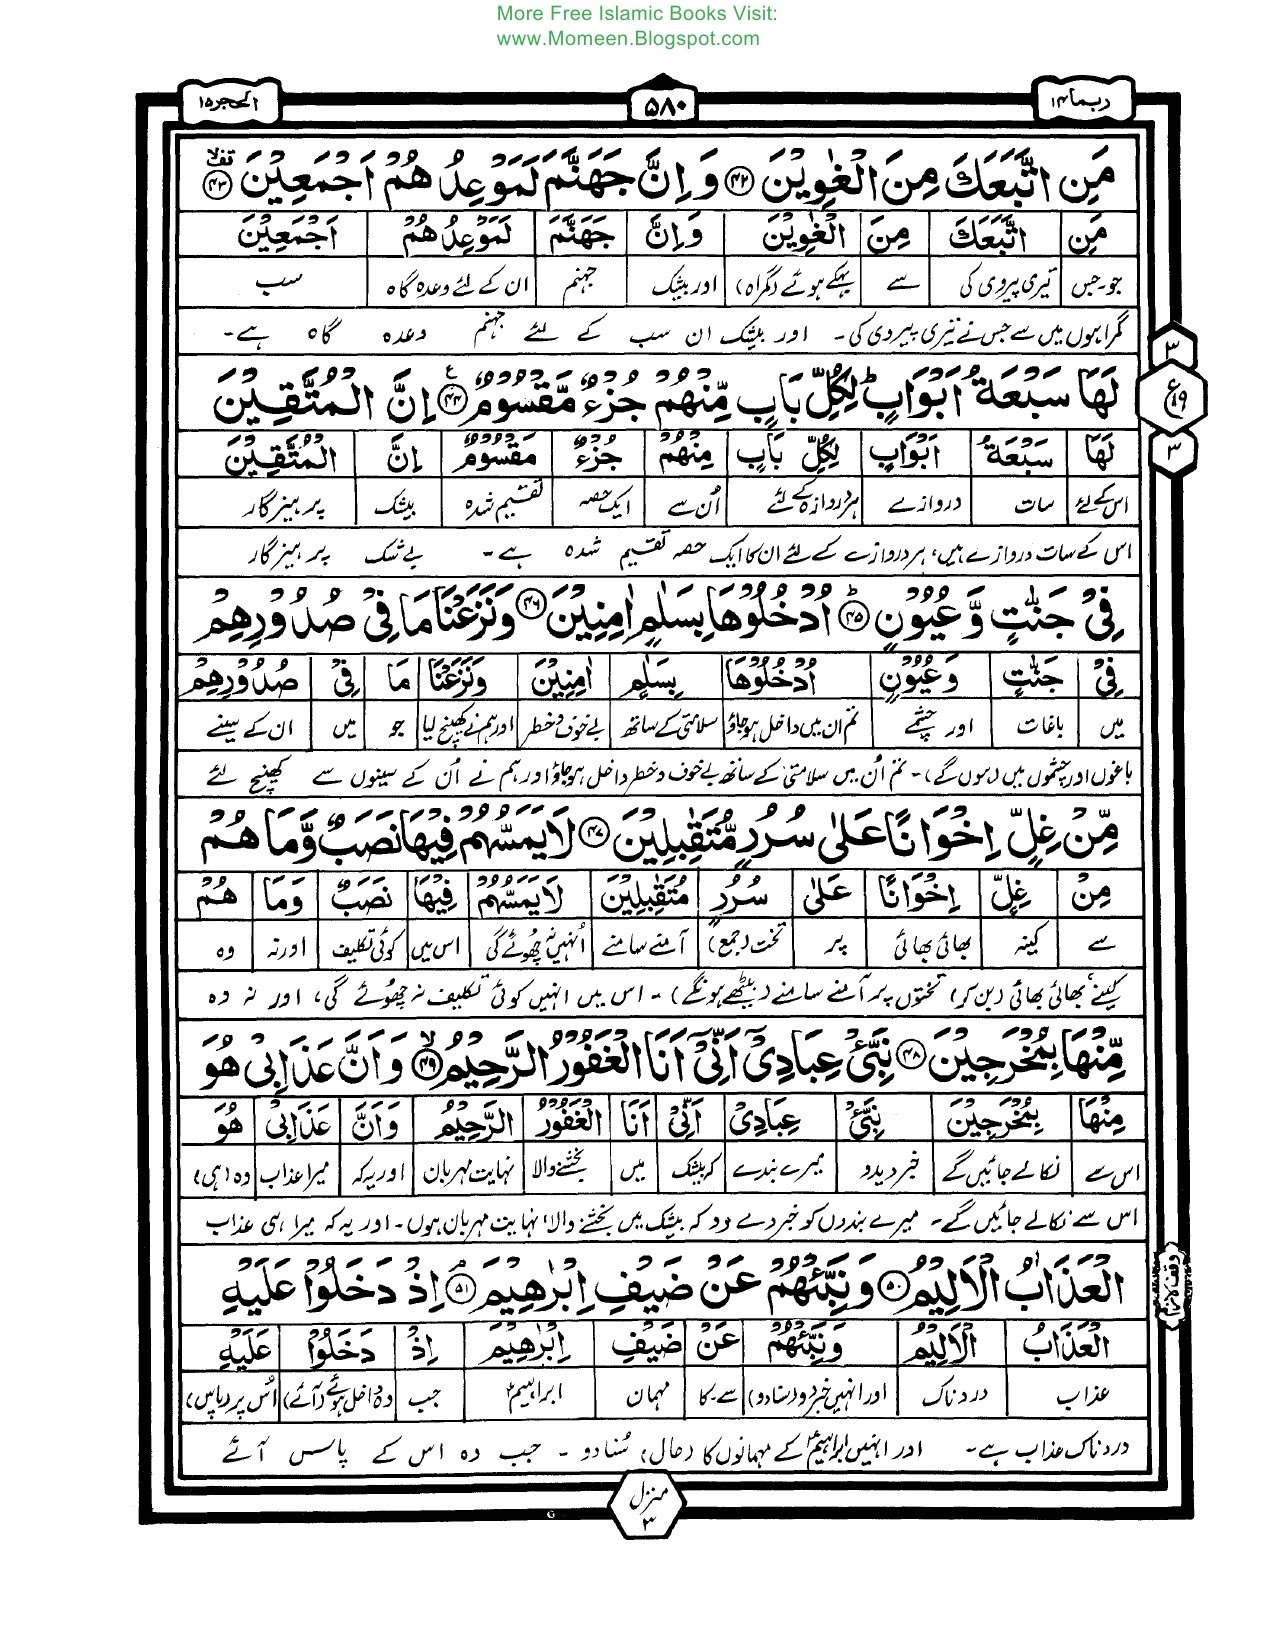 More Free Islamic Books Visit:
www.Momeen.Blogspot.com
ربما ۱۴
۵۸۰
الحجر ۱۵
مَنِ اتَّبَعَكَ مِنَ الْغٰوِيْنَ ﴿۴۲﴾ وَ اِنَّ جَهَنَّمَ لَمَوْعِدُ هُمْ اَجْمَعِيْنَ ﴿۴۳﴾
مَنِ اتَّبَعَكَ مِنَ الْغٰوِيْنَ وَاِنَّ جَهَنَّمَ لَمَوْعِدُ هُمْ اَجْمَعِيْنَ
جو۔جس تیری پیروی کی سے بہکے ہوئے (گمراہ) اور بیشک جہنم ان کے لئے وعدہ گاہ سب
گمراہوں میں سے جس نے تیری پیروی کی۔ اور بیشک ان سب کے لئے جہنم وعدہ گاہ ہے۔
لَهَا سَبْعَةُ اَبْوَابٍ ؕ لِكُلِّ بَابٍ مِّنْهُمْ جُزْءٌ مَّقْسُوْمٌ ﴿۴۴﴾ اِنَّ الْمُتَّقِيْنَ
لَهَا سَبْعَةُ اَبْوَابٍ لِكُلِّ بَابٍ مِنْهُمْ جُزْءٌ مَقْسُوْمٌ اِنَّ الْمُتَّقِيْنَ
اس کے لئے سات دروازے ہر دروازہ کے لئے اُن سے ایک حصہ تقسیم شدہ بیشک پرہیزگار
اس کے سات دروازے ہیں، ہر دروازے کے لئے ان کا ایک حصہ تقسیم شدہ ہے۔ بے شک پرہیزگار
فِيْ جَنّٰتٍ وَّ عُيُوْنٍ ﴿۴۵﴾ اُدْخُلُوْهَا بِسَلٰمٍ اٰمِنِيْنَ ﴿۴۶﴾ وَنَزَعْنَا مَا فِيْ صُدُوْرِهِمْ
فِيْ جَنّٰتٍ وَعُيُوْنٍ اُدْخُلُوْهَا بِسَلٰمٍ اٰمِنِيْنَ وَنَزَعْنَا مَا فِيْ صُدُوْرِهِمْ
میں باغات اور چشمے تم ان میں داخل ہوجاؤ سلامتی کے ساتھ بے خوف و خطر اور ہم نے کھینچ لیا جو میں ان کے سینے
باغوں اور چشموں میں (ہوں گے)۔ تم اُن میں سلامتی کے ساتھ بے خوف و خطر داخل ہوجاؤ اور ہم نے اُن کے سینوں سے کھینچ لئے
مِّنْ غِلٍّ اِخْوَانًا عَلٰى سُرُرٍ مُّتَقٰبِلِيْنَ ﴿۴۷﴾ لَا يَمَسُّهُمْ فِيْهَا نَصَبٌ وَّمَا هُمْ
مِنْ غِلٍّ اِخْوَانًا عَلٰى سُرُرٍ مُتَقٰبِلِيْنَ لَا يَمَسُّهُمْ فِيْهَا نَصَبٌ وَمَا هُمْ
سے کینہ بھائی بھائی پر تخت (جمع) آمنے سامنے اُنہیں نہ چھوئے گی اس میں کوئی تکلیف اور نہ وہ
کینے، بھائی بھائی (بن کر) تختوں پر آمنے سامنے (بیٹھے ہونگے)۔ اس میں انہیں کوئی تکلیف نہ چھوئے گی، اور نہ وہ
مِّنْهَا بِمُخْرَجِيْنَ ﴿۴۸﴾ نَبِّئْ عِبَادِيْ اَنِّيْ اَنَا الْغَفُوْرُ الرَّحِيْمُ ﴿۴۹﴾ وَ اَنَّ عَذَابِيْ هُوَ
مِنْهَا بِمُخْرَجِيْنَ نَبِّئْ عِبَادِيْ اَنِّيْ اَنَا الْغَفُوْرُ الرَّحِيْمُ وَاَنَّ عَذَابِيْ هُوَ
اس سے نکالے جائیں گے خبر دیدو میرے بندے کہ بیشک میں بخشنے والا نہایت مہربان اور یہ کہ میرا عذاب وہ (ہی)
اس سے نکالے جائیں گے۔ میرے بندوں کو خبر دے دو کہ بیشک میں بخشنے والا نہایت مہربان ہوں۔ اور یہ کہ میرا ہی عذاب
الْعَذَابُ الْاَلِيْمُ ﴿۵۰﴾ وَنَبِّئْهُمْ عَنْ ضَيْفِ اِبْرٰهِيْمَ ﴿۵۱﴾ اِذْ دَخَلُوْا عَلَيْهِ
الْعَذَابُ الْاَلِيْمُ وَنَبِّئْهُمْ عَنْ ضَيْفِ اِبْرٰهِيْمَ اِذْ دَخَلُوْا عَلَيْهِ
عذاب دردناک اور انہیں خبر دو (سنادو) سے۔کا مہمان ابراہیمؑ جب وہ داخل ہوئے (آئے) اُس پر (پاس)
دردناک عذاب ہے۔ اور انہیں ابراہیمؑ کے مہمانوں کا (حال) سُنا دو۔ جب وہ اس کے پاس آئے
۳
ع
۱۹
۳
منزل
۳